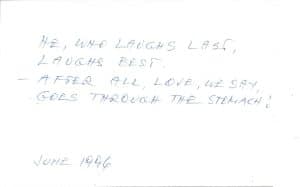 HE, WHO LAUGHS LAST,
LAUGHS BEST.
- AFTER ALL, LOVE, WE SAY,
GOES THROUGH THE STOMACH!
JUNE 1996